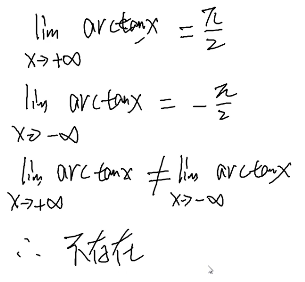 lim arctanx = π/2
x→+∞
lim arctanx = -π/2
x→-∞
lim arctanx ≠ lim arctanx
x→+∞ x→-∞
∴ 不存在